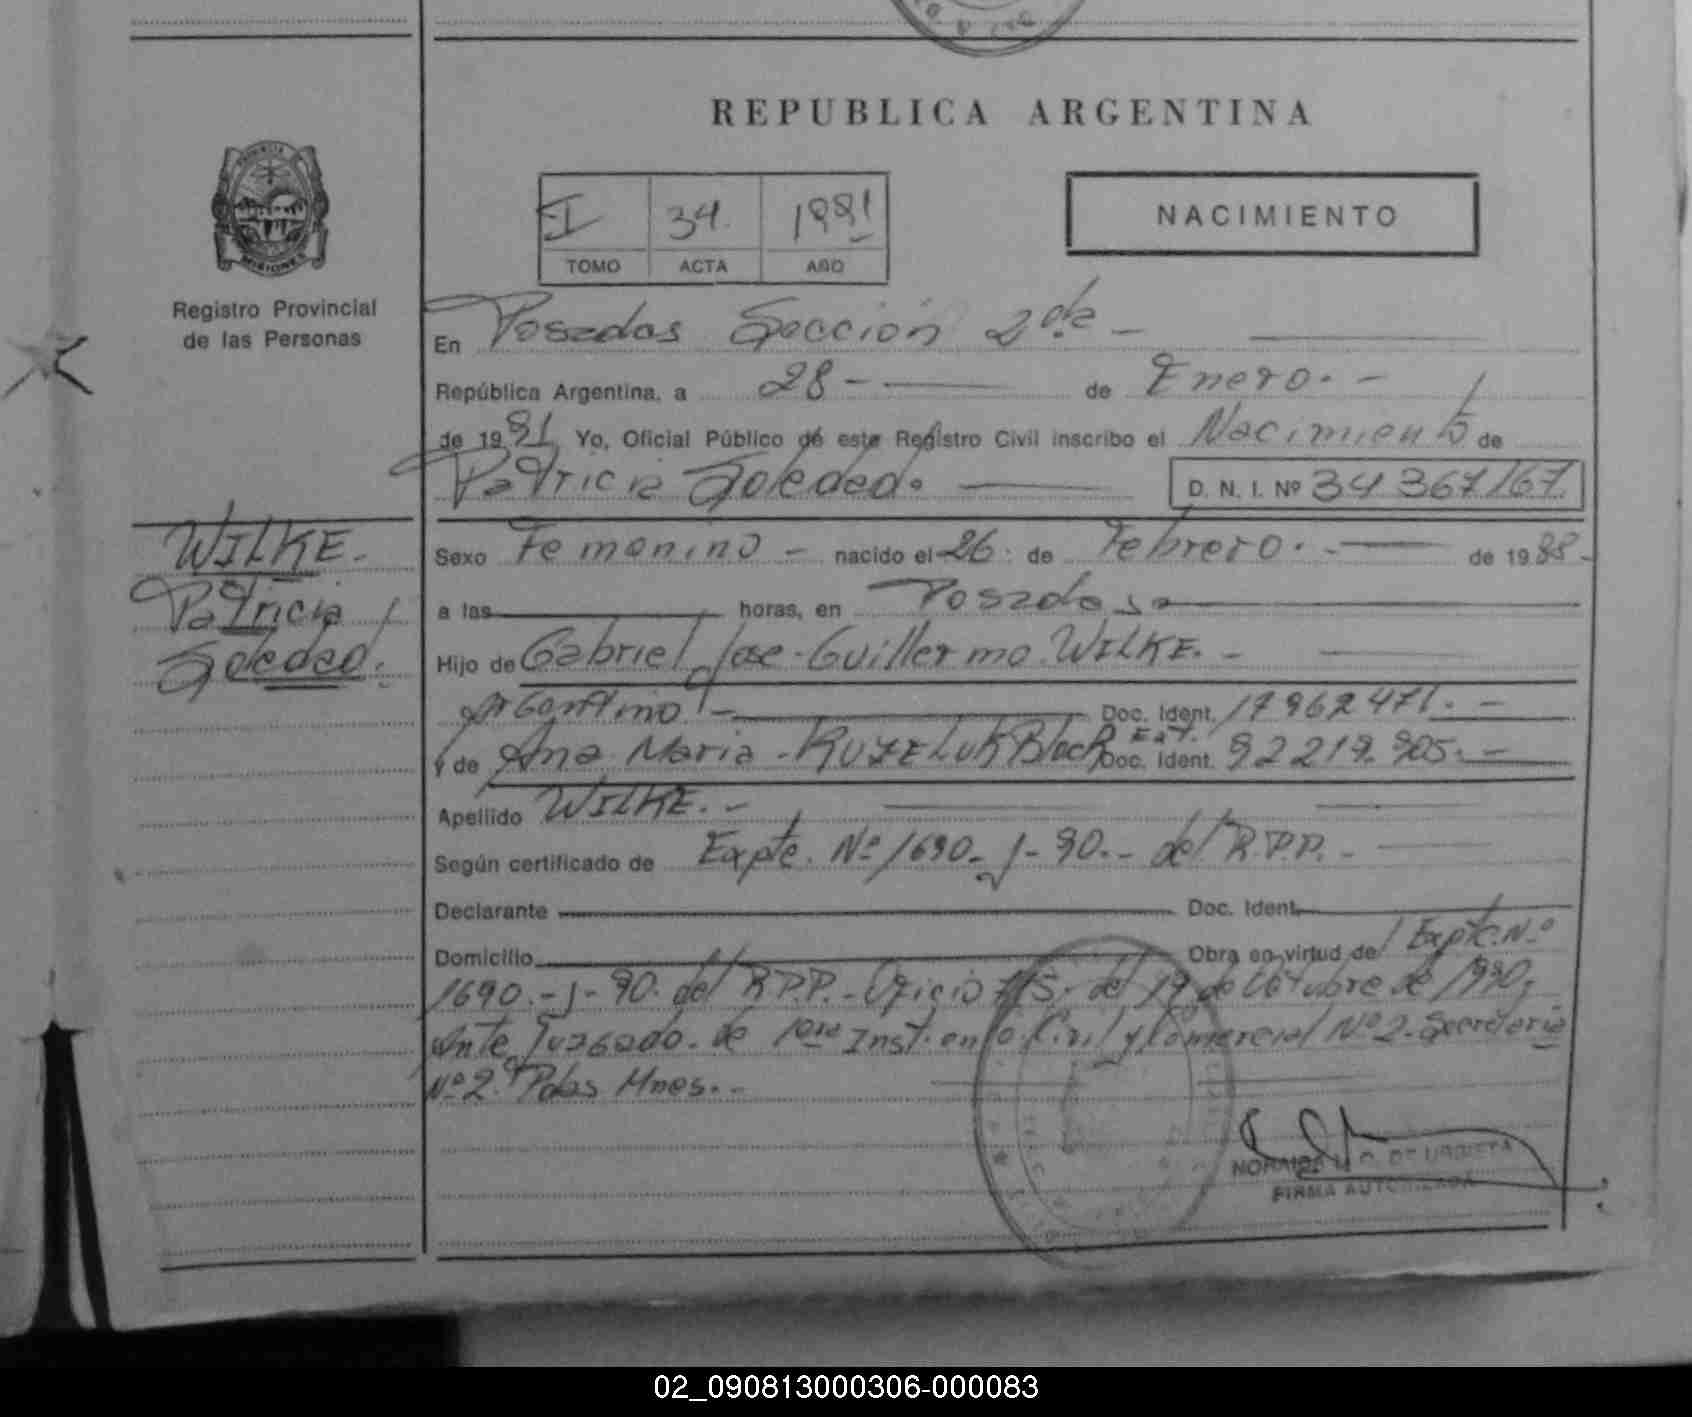 REPUBLICA ARGENTINA
I 34. 1991
TOMO ACTA AÑO
NACIMIENTO
PROVINCIA
MISIONES
Registro Provincial
de las Personas
En Posadas Sección 2da -
República Argentina, a 28 - de Enero. -
de 19 91 Yo, Oficial Público de este Registro Civil inscribo el Nacimiento de
Patricia Soledad. D. N. I. Nº 34 367167.
WILKE.
Patricia
Soledad.
Sexo Femenino - nacido el 26. de Febrero. - de 19 88 -
a las horas, en Posadas
Hijo de Gabriel Jose Guillermo WILKE. -
Argentino - Doc. Ident. 17962471. -
y de Ana Maria - Block Ext. Doc. Ident. 92219.905. -
Apellido WILKE. -
Según certificado de Expte. Nº 1690 - J - 90. - del R.P.P. -
Declarante Doc. Ident.
Domicilio Obra en virtud de Expte. Nº
1690. - J - 90. del R.P.P. - Oficio del 19 de Octubre de 1990,
Ante Juzgado. de 1era Inst. en lo Civil y Comercial Nº 2 - Secreteria
Nº 2. Pdas Mnes. -
DE URDIETA
FIRMA AUTORIZADA
02_090813000306-000083